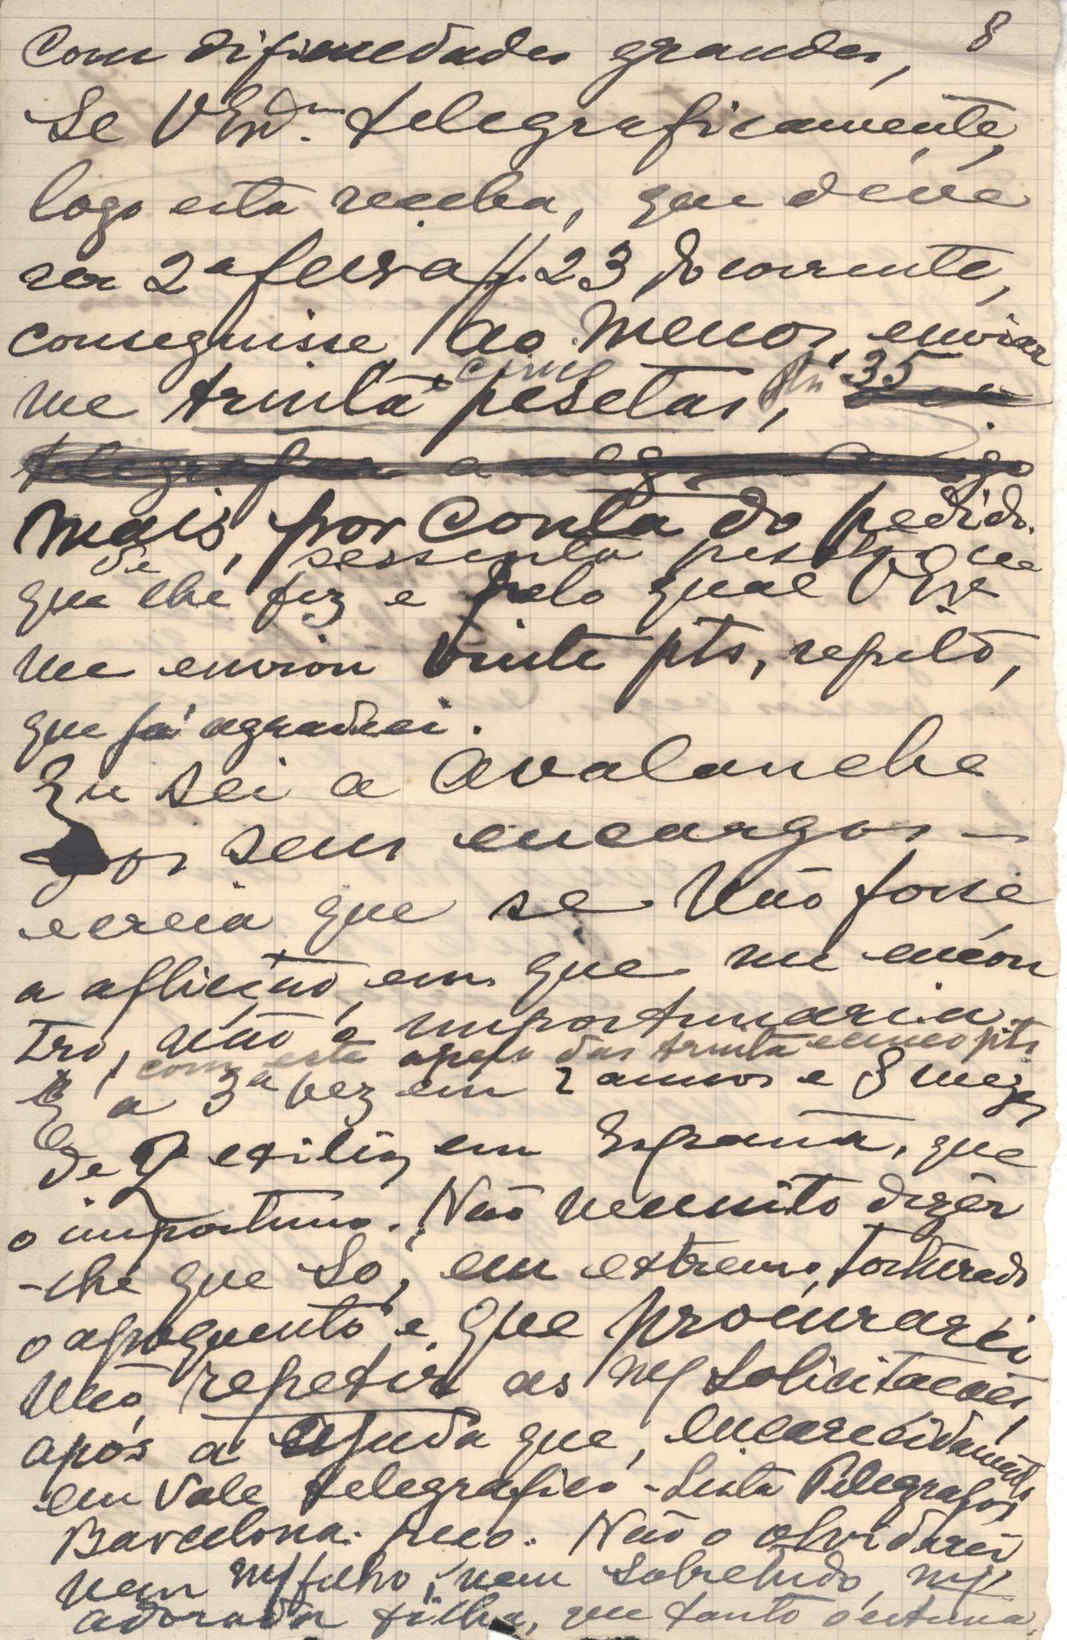 8
com dificuldades grandes,
Se V Exª. telegraficamente,
logo esta receba, que deve
ser 2ª feira, 23 do corrente,
conseguisse ao menos enviar
me trinta e cinco pesetas, 35
mais, por conta do pedido
de sessenta pesetas que
que lhe fiz e pelo qual V Exª
me enviou vinte pts, repito,
que já agradeci.
Eu sei a avalanche
dos seus encargos —
e creia que se não fosse
a aflicção em que me encon
tro, não o importunaria.
com esta apelo das trinta e cinco pts
É a 3ª vez em 2 annos e 8 mezes
de exilio, em Espanha, que
o importuno. Não necessito dizer
-lhe que só, em extremo, torturado
o apoquento e que procurarei
não repetir as m/ solicitações,
após a ajuda que, encarecidamente
em vale telegrafico - Lista Telegrafos,
Barcelona. peço. Não o olvidarei
nem m/ filho, nem sobretudo, m/
adorada filha, que tanto o estima.